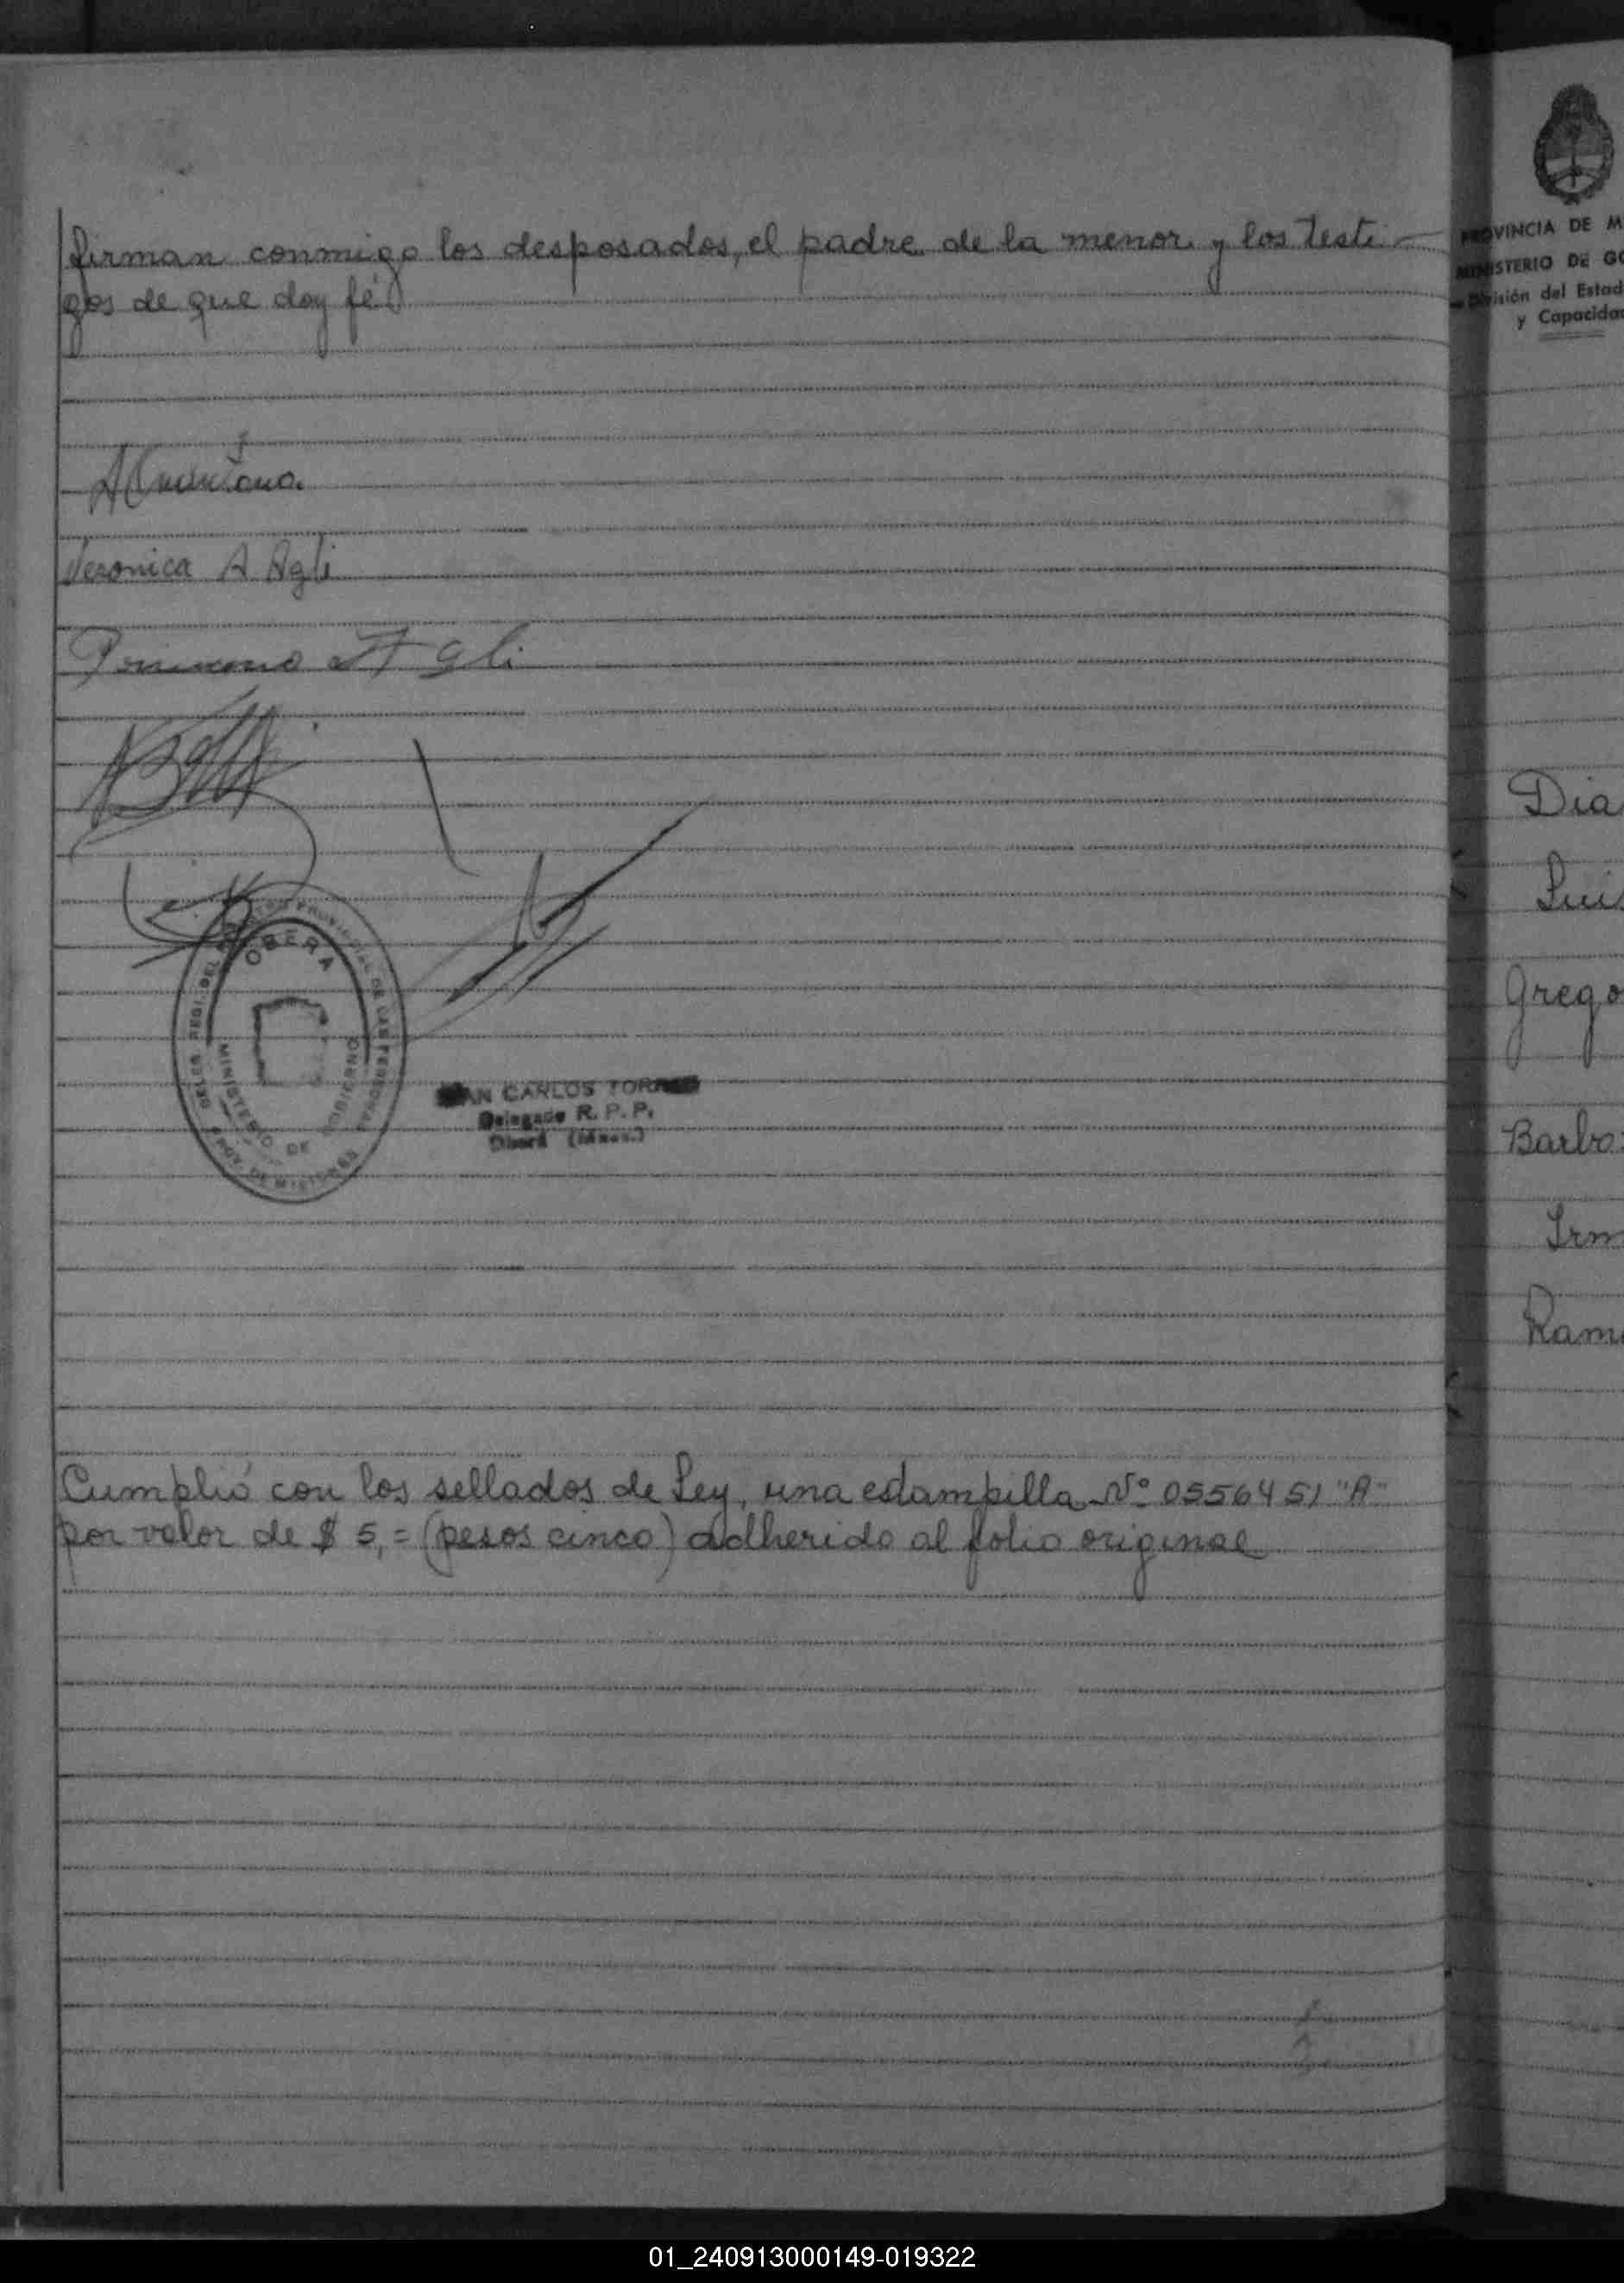 firman conmigo los desposados, el padre de la menor y los testi-
gos de que doy fé.
Veronica A Agli
Agli
OBERA
MINISTERIO DE GOBIERNO
PROV. DE MISIONES
AN CARLOS TORRES
Delegado R. P. P.
Oberá (Mnes.)
Cumplió con los sellados de Ley, una estampilla Nº 0556451 "A"
por valor de $ 5,= (pesos cinco) adherido al folio original
PROVINCIA DE M
MINISTERIO DE GO
División del Estad
y Capacidad
Dia
Luis
Grego
Barbo
Irm
Rami
01_240913000149-019322